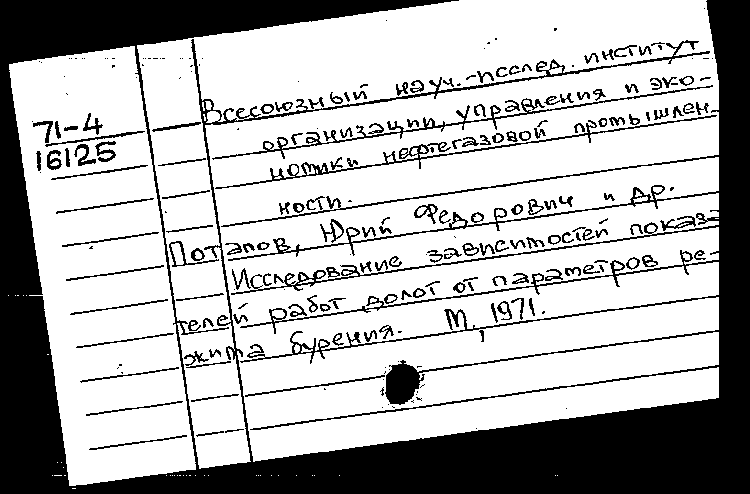 71-4
16125
Всесоюзный науч.-исслед. институт
организации, управления и эко-
номики нефтегазовой промышлен-
ности.
Потапов, Юрий Федорович и др.
Исследование зависимостей показа
телей работ долот от параметров ре-
жима бурения. М., 1971.